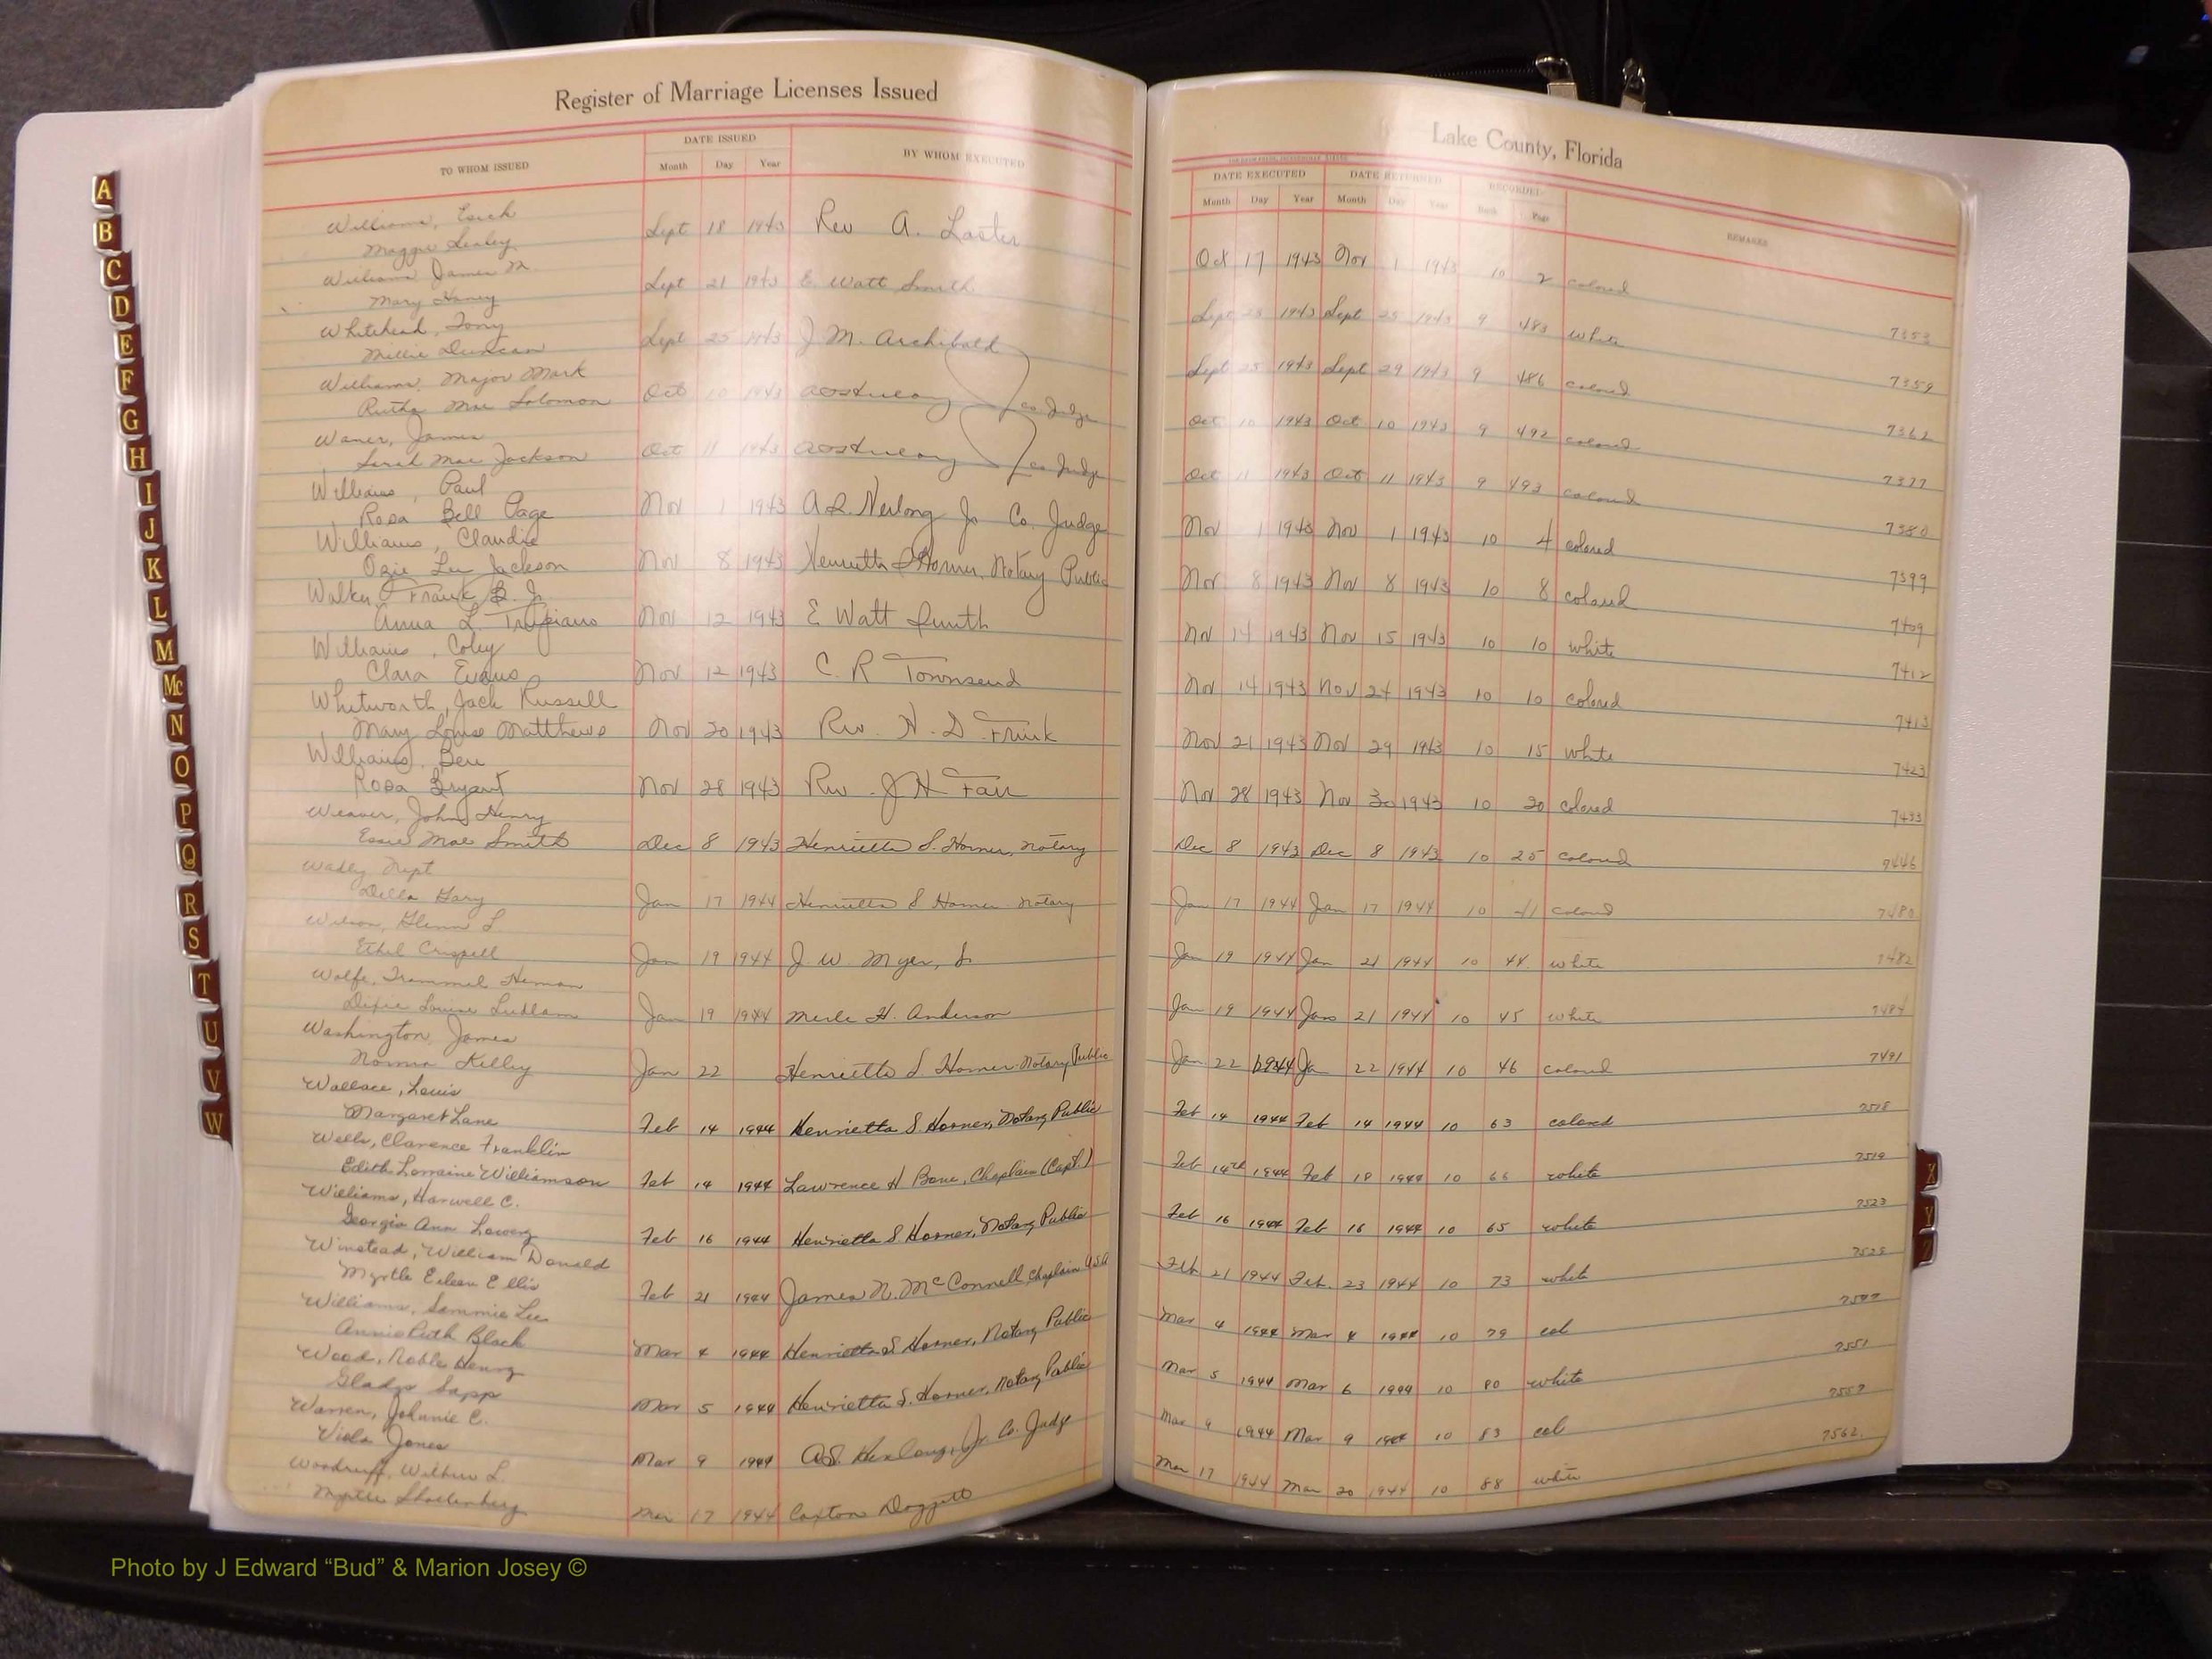 Register of Marriage Licenses Issued
TO WHOM ISSUED
DATE ISSUED
Month Day Year
BY WHOM EXECUTED
Williams,
Maggie
Sept 18 1943 Rev A.
Williams James M.
Mary Haney
Sept 21 1943 E. Watt Smith
Whitehead, Tony
Millie Duncan
Sept 25 1943 J M. Archibald
Williams, Major Mark
Rutha Mae Solomon
Oct 10 1943 Co. Judge
James
Sarah Mae Jackson
Oct 11 1943 Co Judge
Williams, Paul
Rosa Bell Page
Nov 1 1943 Jr Co. Judge
Williams, Claudie
Ozie Lee Jackson
Nov 8 1943 Henrietta S Horner, Notary Public
Walker, Frank B. Jr.
Anna L.
Nov 12 1943 E Watt Smith
Williams, Coley
Clara Evans
Nov 12 1943 C. R Townsend
Whitworth, Jack Russell
Mary Louise Matthews
Nov 20 1943 Rev. H. D.
Williams, Ben
Rosa Bryant
Nov 28 1943 Rev. J H Fair
Weaver, John Henry
Essie Mae Smith
Dec 8 1943 Henrietta S. Horner, Notary
Della Gary
Jan 17 1944 Henrietta S Horner Notary
Wilson, Glenn L
Ethel Crispell
Jan 19 1944 J W Myer,
Wolfe, Trammel
Dixie Louise Ludlam
Jan 19 1944 Merle H. Anderson
Washington, James
Norma Kelley
Jan 22 Henrietta S Horner Notary Public
Wallace, Louis
Margaret Lane
Feb 14 1944 Henrietta S. Horner, Notary Public
Wells, Clarence Franklin
Edith Lorraine Williamson
Feb 14 1944 Lawrence H Bone, Chaplain (Capt.)
Williams, Harwell C.
Georgia Ann Lowery
Feb 16 1944 Henrietta S Horner, Notary Public
Winstead, William Donald
Myrtle Eileen Ellis
Feb 21 1944 James N. McConnell, Chaplain USA
Williams, Sammie Lee
Annie Ruth Black
Mar 4 1944 Henrietta S Horner, Notary Public
Wood, Noble Henry
Gladys Sapp
Mar 5 1944 Henrietta S. Horner, Notary Public
Warren, Johnnie C.
Viola Jones
Mar 9 1944 Jr. Co. Judge
Woodruff, Wilbur L.
Myrtle
Mar 17 1944 Caxton Doggett
Lake County, Florida
DATE EXECUTED
Month Day Year
DATE RETURNED
Month Day Year
RECORDED
Book Page
REMARKS
Oct 17 1943 Nov 1 1943 10 2 colored
7353
Sept 25 1943 9 483 white
7359
Sept 25 1943 Sept 29 1943 9 486 colored
7362
Oct 10 1943 Oct 10 1943 9 492 colored
7377
Oct 11 1943 Oct 11 1943 9 493 colored
7380
Nov 1 1943 Nov 1 1943 10 4 colored
7399
Nov 8 1943 Nov 8 1943 10 8 colored
7409
Nov 14 1943 Nov 15 1943 10 10 white
7412
Nov 14 1943 Nov 24 1943 10 10 colored
7413
Nov 21 1943 Nov 29 1943 10 15 white
7423
Nov 28 1943 Nov 30 1943 10 20 colored
7433
Dec 8 1943 Dec 8 1943 10 25 colored
7446
Jan 17 1944 Jan 17 1944 10 41 colored
7480
Jan 19 1944 Jan 21 1944 10 44 white
7482
Jan 19 1944 Jan 21 1944 10 45 white
7484
Jan 22 1944 Jan 22 1944 10 46 colored
7491
Feb 14 1944 Feb 14 1944 10 63 colored
7518
Feb 14th 1944 Feb 18 1944 10 66 white
7519
Feb 16 1944 Feb 16 1944 10 65 white
7523
Feb 21 1944 Feb. 23 1944 10 73 white
Mar 4 1944 Mar 4 1944 10 79 col
7551
Mar 5 1944 Mar 6 1944 10 80 white
7557
Mar 9 1944 Mar 9 1944 10 83 col
7562
Mar 17 1944 Mar 20 1944 10 88 white
A
B
C
D
E
F
G
H
I
J
K
L
M
Mc
N
O
P
Q
R
S
T
U
V
W
X
Y
Z
Photo by J Edward “Bud” & Marion Josey ©